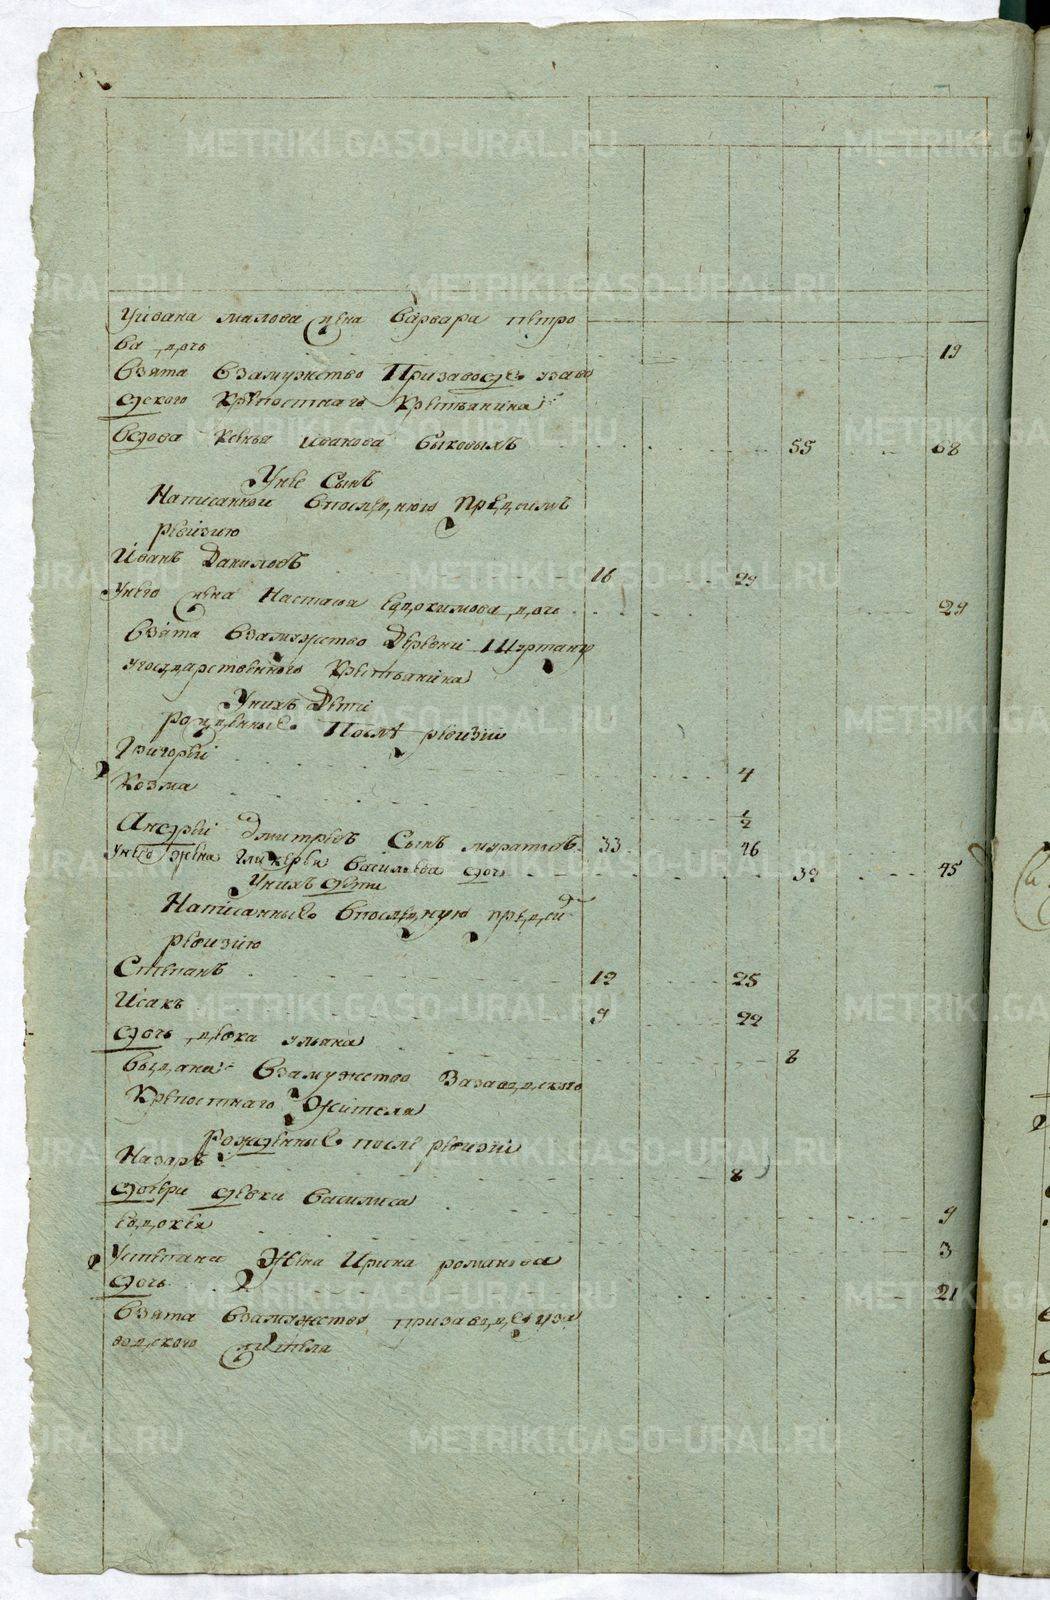 У Ивана малова жена варвара петро
ва дочь 19
взята взамужство При заводе у заво
дского крепостнаго крестьянина
вдова ксенья иванова быковыхъ 55 68
У нее Сынъ
Написанной впоследнюю пред симъ
ревизию
Иванъ Даниловъ 16 29
У него жена Настасья Евдокимова дочь 29
взята взамужство Деревни
у государственного крестьянина
У нихъ Дети
рожденные После ревизии
Григорей 4
Козма 1/2
Андрей Дмитревъ Сынъ муратовъ 33 46
У него жена гликерья васильева дочь 39 45
У нихъ дети
Написанные впоследную пред сей
ревизию
Степанъ 12 25
Исакъ 9 22
дочь девка ульяна 8
выдана взамужство за заводского
Крепостнаго Жителя
Рожденные после ревизии
Назаръ 8
дочери девки василиса 9
евдокея 3
У степана Жена Ирина романова
дочь 21
взята взамужство при заводе у за
водского жителя
METRIKI.GASO-URAL.RU